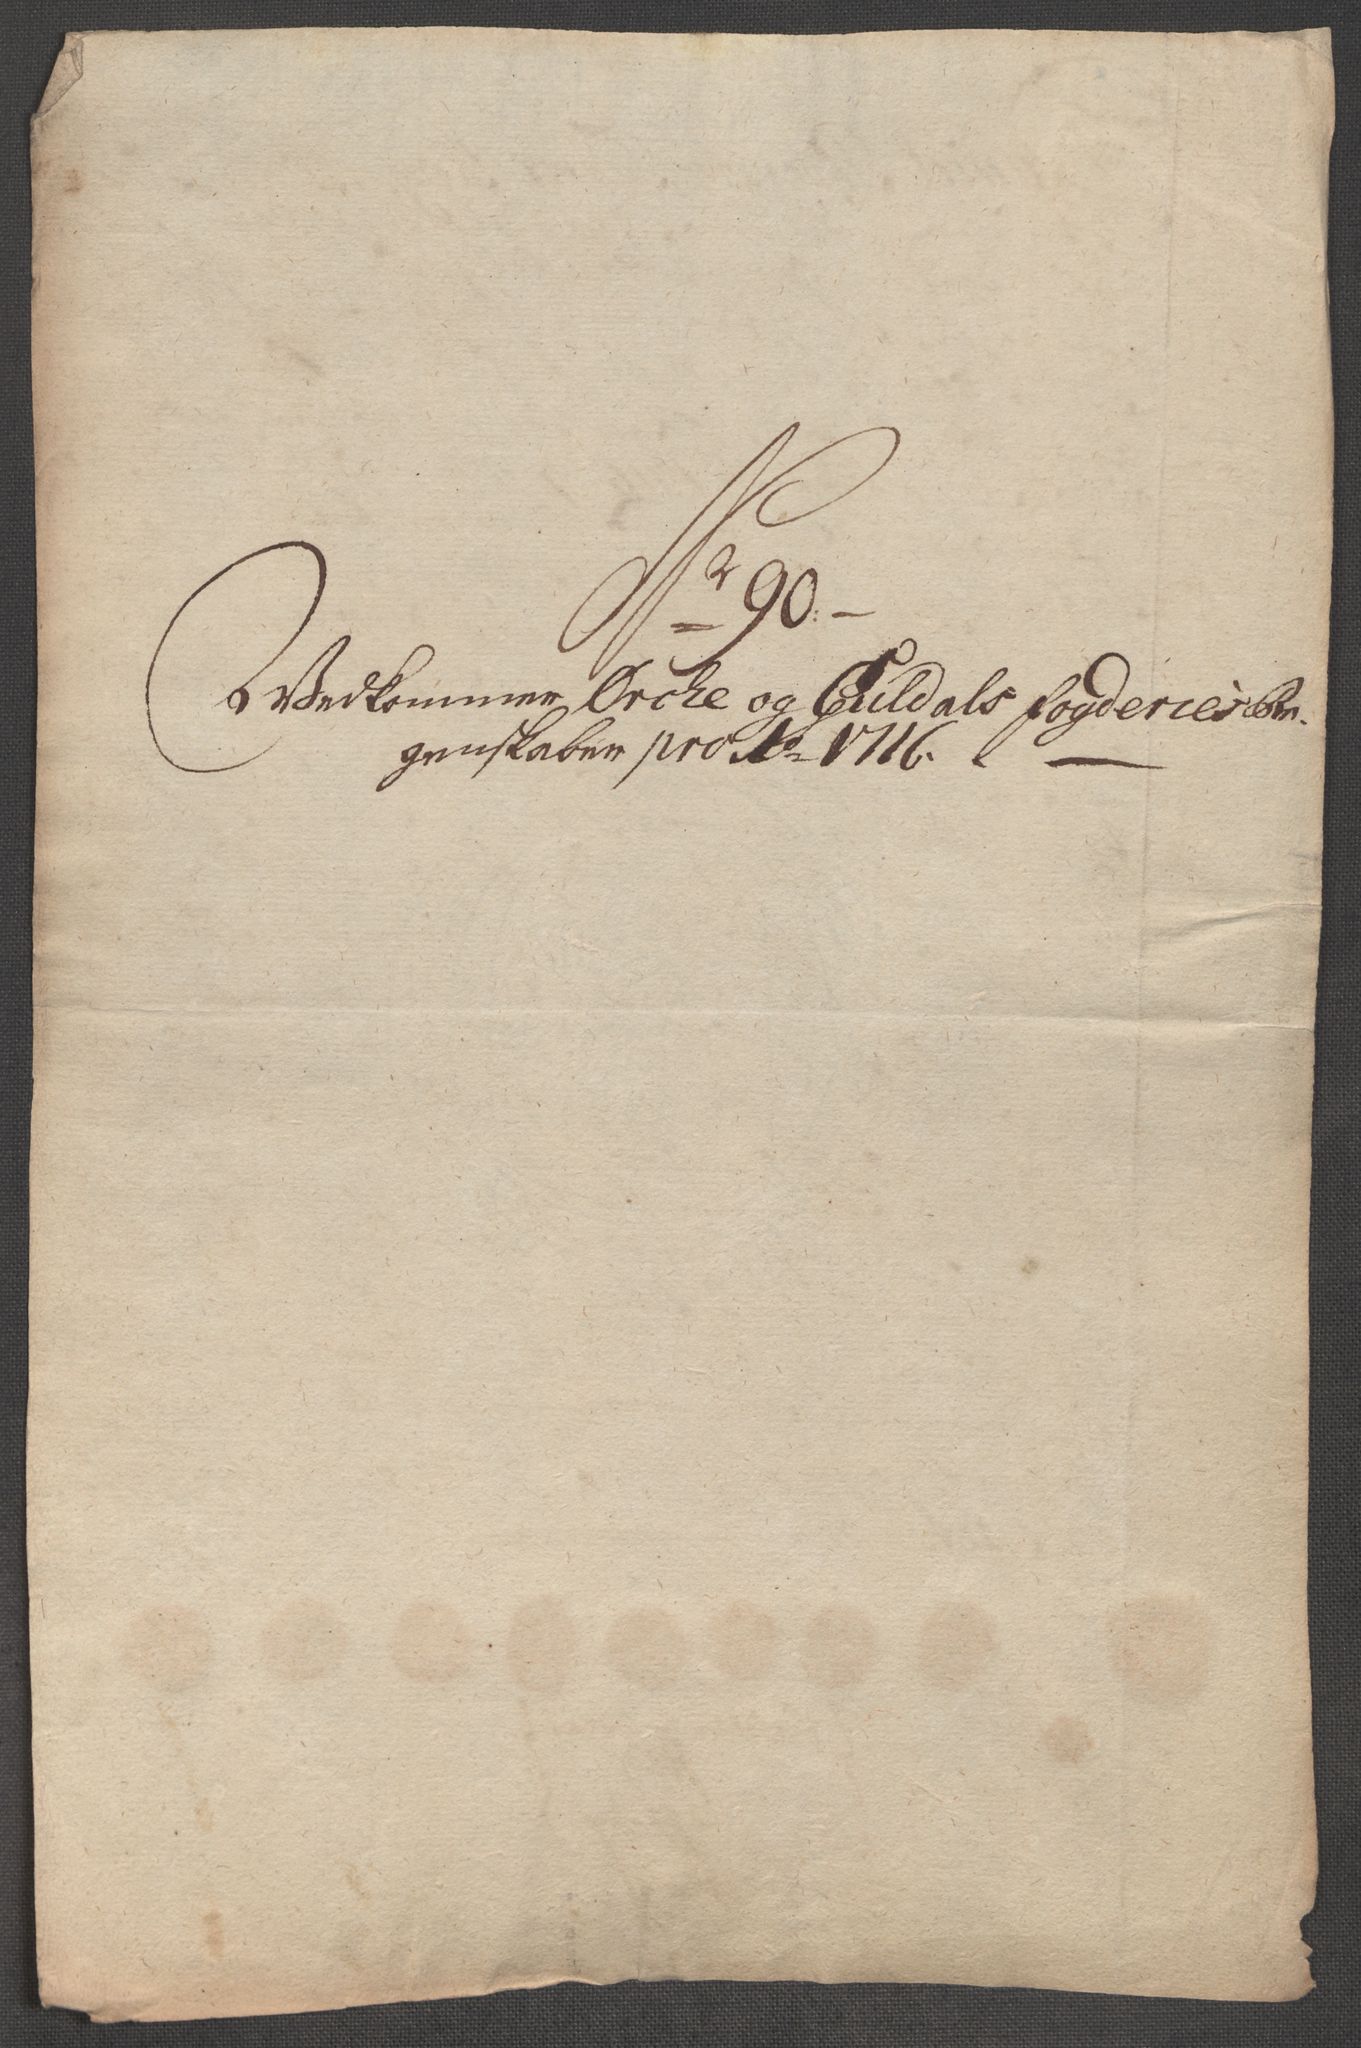 Nr 90.
Vedkommer Ørche og Guldals fogderies Re-
genskaber pro Ao 1716.